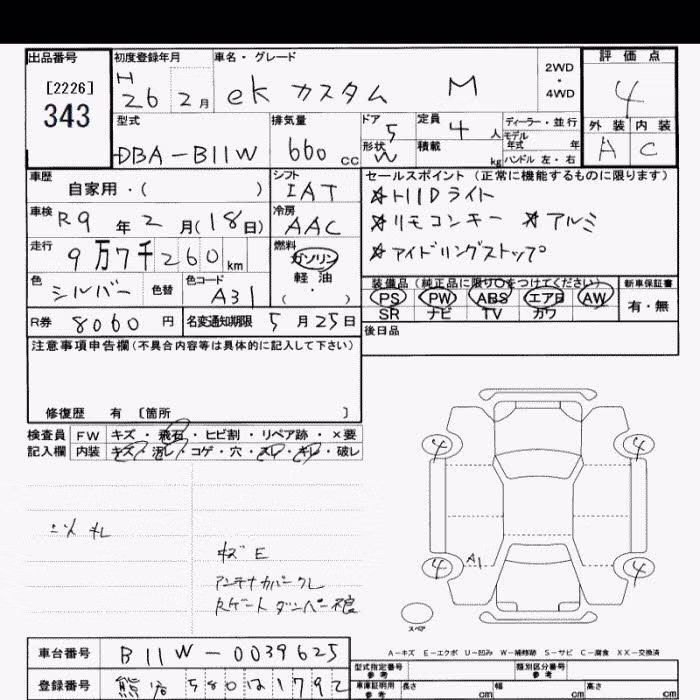 出品番号 初度登録年月 車名・グレード 2WD・4WD 評価点
[2226] 343 H26 2月 ek カスタム M 4
型式 排気量 ドア 5 定員 4人 ディーラー・並行 外装 内装
DBA-B11W 660cc 形状 W 積載 kg モデル年式 年 ハンドル 左・右 A C
車歴 自家用・( ) シフト IAT セールスポイント (正常に機能するものに限ります)
☆HIDライト
車検 R9年2月(18日) 冷房 AAC ☆リモコンキー ☆アルミ
走行 9万7千260km 燃料 ガソリン 軽油 (・) ☆アイドリングストップ
色 シルバー 色替 色コード A31 装備品 (純正品に限り○をつけてください) 新車保証書
PS PW ABS エアB AW 有・無
SR ナビ TV カワ
R券 8060円 名変通知期限 5月25日 後日品
注意事項申告欄(不具合内容等は具体的に記入して下さい)
修復歴 有 [箇所 ]
検査員 FW キズ・飛石・ヒビ割・リペア跡・×要
記入欄 内装 キズ・汚レ・コゲ・穴・スレ・キレ・破レ
4 4
キズ E
アンテナカバークレ
Rゲートダンパー不良
A1
4 4
スペア
A-キズ E-エクボ U-凹み W-補修跡 S-サビ C-腐食 XX-交換済
車台番号 B11W-0039625 型式指定番号 参考 類別区分番号 参考
登録番号 車庫証明用 参考 長さ cm 幅 cm 高さ cm